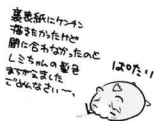 裏表紙にケンケン
描きたかったけど
間に合わなかったのと
レミちゃんの髪色
まちがえました
ごめんなさいー。
ぱたり